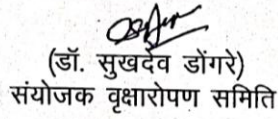 (डॉ. सुखदेव डोंगरे)
संयोजक वृक्षारोपण समिति